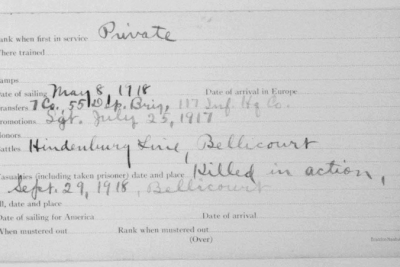 ank when first in service Private
Where trained
amps
Date of sailing May 8, 1918 Date of arrival in Europe
ransfers 7 Co., 55 Dep. Brig, 117 Inf. Hq Co.
romotions Sgt. July 25, 1917
onors
attles Hindenburg Line, Bellicourt
asualties (including taken prisoner) date and place Killed in action,
Sept. 29, 1918, Bellicourt
ll, date and place
Date of sailing for America Date of arrival
When mustered out Rank when mustered out
(Over)